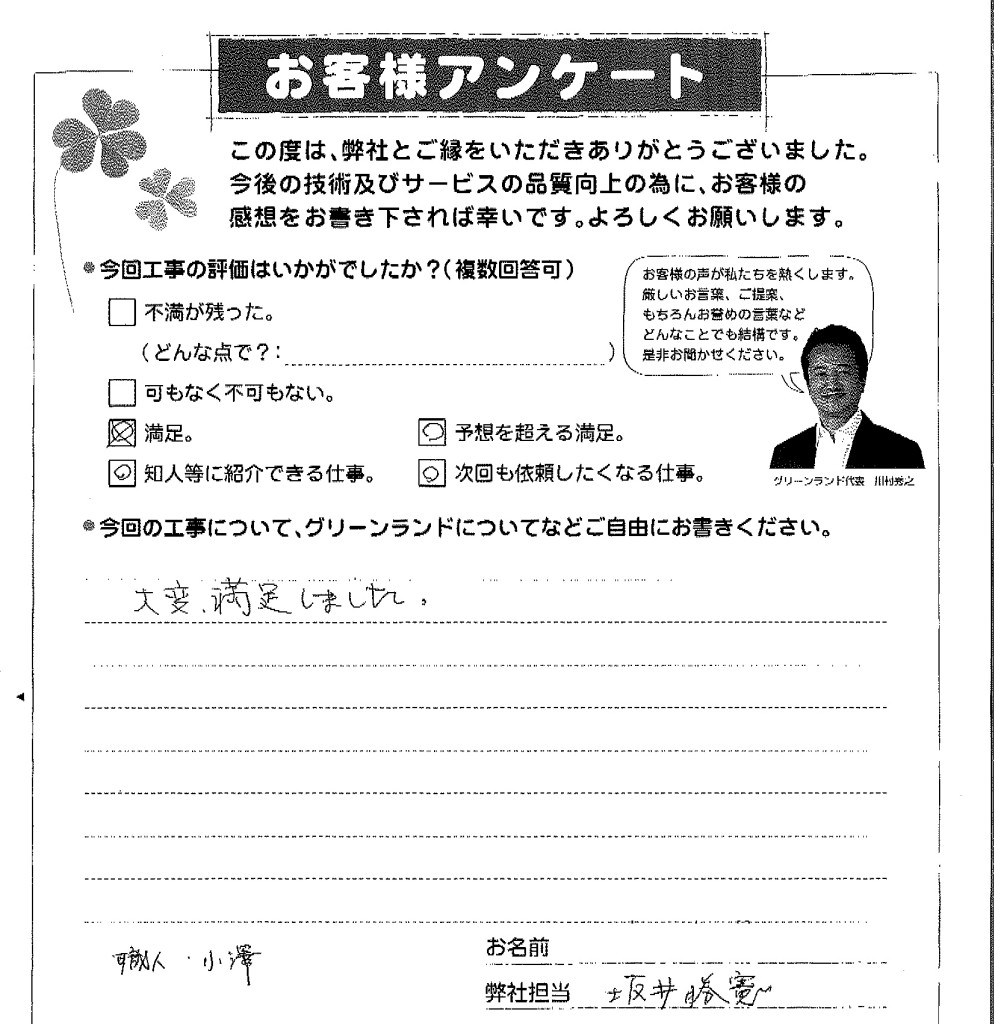 お客様アンケート
この度は、弊社とご縁をいただきありがとうございました。
今後の技術及びサービスの品質向上の為に、お客様の
感想をお書き下されば幸いです。よろしくお願いします。
今回工事の評価はいかがでしたか？（複数回答可）
不満が残った。
（どんな点で？： ）
可もなく不可もない。
満足。
予想を超える満足。
知人等に紹介できる仕事。
次回も依頼したくなる仕事。
お客様の声が私たちを熱くします。
厳しいお言葉、ご提案、
もちろんお誉めの言葉など
どんなことでも結構です。
是非お聞かせください。
グリーンランド代表 川村秀之
今回の工事について、グリーンランドについてなどご自由にお書きください。
大変、満足しました。
職人・小澤
お名前
弊社担当 坂井勝寛